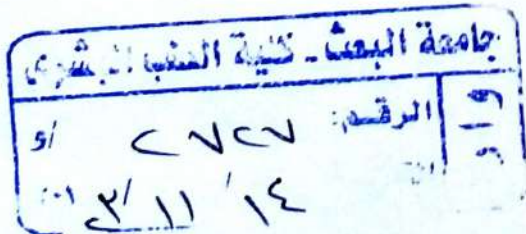 جامعة البعث - كلية الطب البشري
الرقم: ٢٧٢٧ /و
١٤ / ١١ /